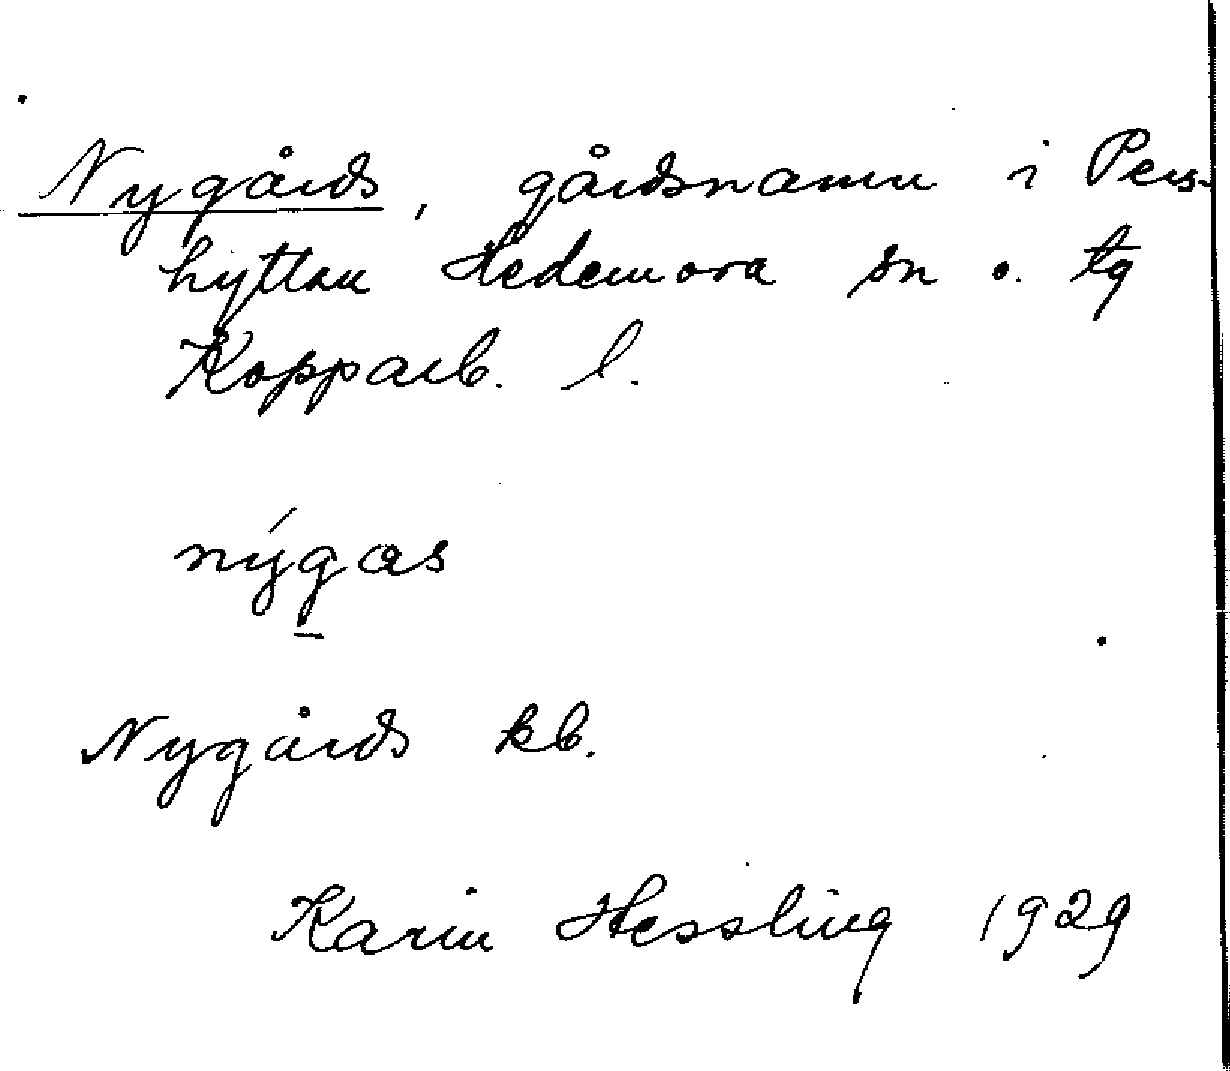 Nygårds, gårdsnamn i Pers-
hyttan Hedemora sn o. tg
Kopparb. l.
nýgas
Nygårds kb.
Karin Hessling 1929